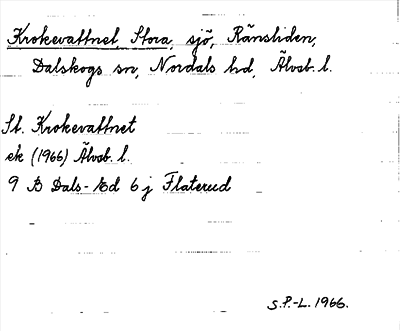 Krokevattnet, Stora, sjö, Ränsliden,
Dalskogs sn, Nordals hd, Älvsb. l.
St. Krokevattnet
ek (1966) Älvsb. l.
9 B Dals-Ed 6 j Flaterud
S.P.-L. 1966.